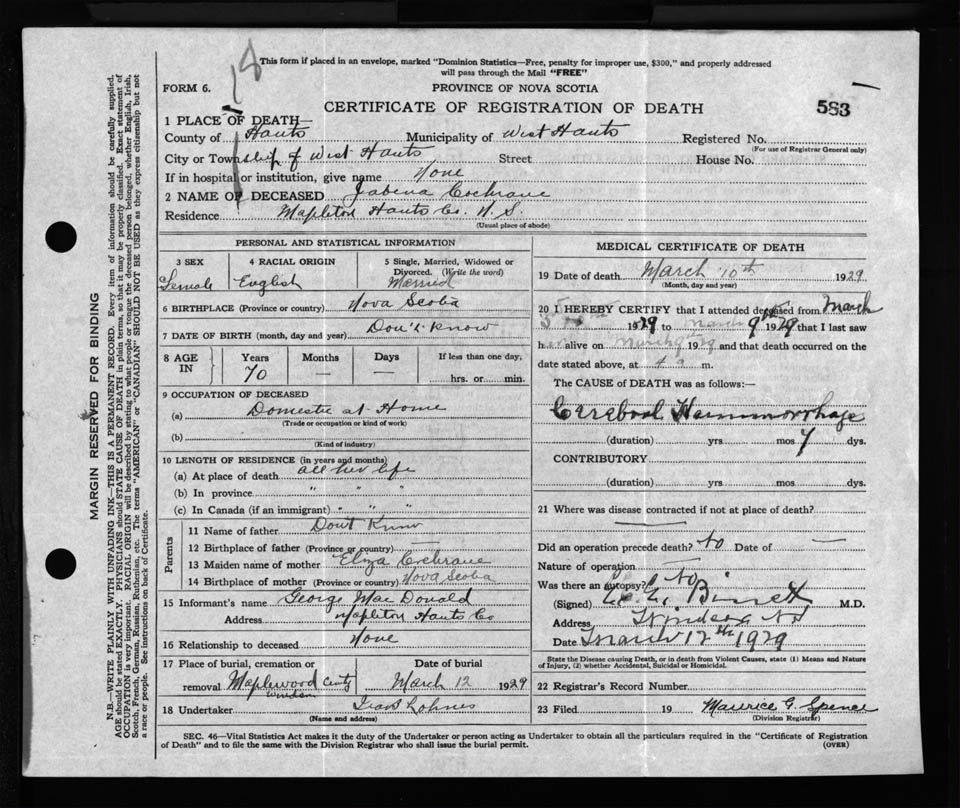 18
This form if placed in an envelope, marked "Dominion Statistics—Free, penalty for improper use, $300," and properly addressed
will pass through the Mail "FREE"
FORM 6.
PROVINCE OF NOVA SCOTIA
CERTIFICATE OF REGISTRATION OF DEATH
563
1 PLACE OF DEATH—
County of Hants Municipality of West Hants Registered No.
(For use of Registrar General only)
City or Township of West Hants Street House No.
If in hospital or institution, give name None
2 NAME OF DECEASED Jabena Cochrane
Residence Mapleton Hants Co. N. S.
(Usual place of abode)
PERSONAL AND STATISTICAL INFORMATION
3 SEX 4 RACIAL ORIGIN 5 Single, Married, Widowed or
Divorced. (Write the word)
Female English Married
6 BIRTHPLACE (Province or country) Nova Scotia
7 DATE OF BIRTH (month, day and year) Don't Know
8 AGE IN Years Months Days If less than one day,
70 — — hrs. or min.
9 OCCUPATION OF DECEASED
(a) Domestic at Home
(Trade or occupation or kind of work)
(b)
(Kind of industry)
10 LENGTH OF RESIDENCE (in years and months)
(a) At place of death all her life
(b) In province " " "
(c) In Canada (if an immigrant) " " "
Parents
11 Name of father Dont Know
12 Birthplace of father (Province or country) —
13 Maiden name of mother Eliza Cochrane
14 Birthplace of mother (Province or country) Nova Scotia
15 Informant's name George MacDonald
Address Mapleton Hants Co
16 Relationship to deceased None
17 Place of burial, cremation or Date of burial
removal Maplewood Windsor March 12 1929
18 Undertaker
(Name and address)
MEDICAL CERTIFICATE OF DEATH
19 Date of death March 10th 1929
(Month, day and year)
20 I HEREBY CERTIFY that I attended deceased from March
1929 to March 9th 1929 that I last saw
her alive on March 9th 1929 and that death occurred on the
date stated above, at 4 a m.
The CAUSE OF DEATH was as follows:—
Cerebral Haemmorrhage
(duration) yrs. mos 7 dys.
CONTRIBUTORY
(duration) yrs. mos. dys.
21 Where was disease contracted if not at place of death?
—
Did an operation precede death? No Date of —
Nature of operation —
Was there an autopsy? No
(Signed) M.D.
Address Windsor NS
Date March 12th 1929
State the Disease causing Death, or in death from Violent Causes, state (1) Means and Nature
of Injury, (2) whether Accidental, Suicidal or Homicidal.
22 Registrar's Record Number
23 Filed 19 Maurice G. Spence
(Division Registrar)
SEC. 46—Vital Statistics Act makes it the duty of the Undertaker or person acting as Undertaker to obtain all the particulars required in the "Certificate of Registration
of Death" and to file the same with the Division Registrar who shall issue the burial permit.
(OVER)
MARGIN RESERVED FOR BINDING
N.B.—WRITE PLAINLY, WITH UNFADING INK—THIS IS A PERMANENT RECORD. Every item of information should be carefully supplied.
AGE should be stated EXACTLY. PHYSICIANS should STATE CAUSE OF DEATH in plain terms, so that it may be properly classified. Exact statement of
OCCUPATION is very important. RACIAL ORIGIN will be described by stating to what people or tongue the deceased person belonged, whether English, Irish,
Scotch, French, German, Russian, Ruthenian, etc. The terms "AMERICAN" or "CANADIAN" SHOULD NOT BE USED as they express citizenship but not
a race or people. See instructions on back of Certificate.